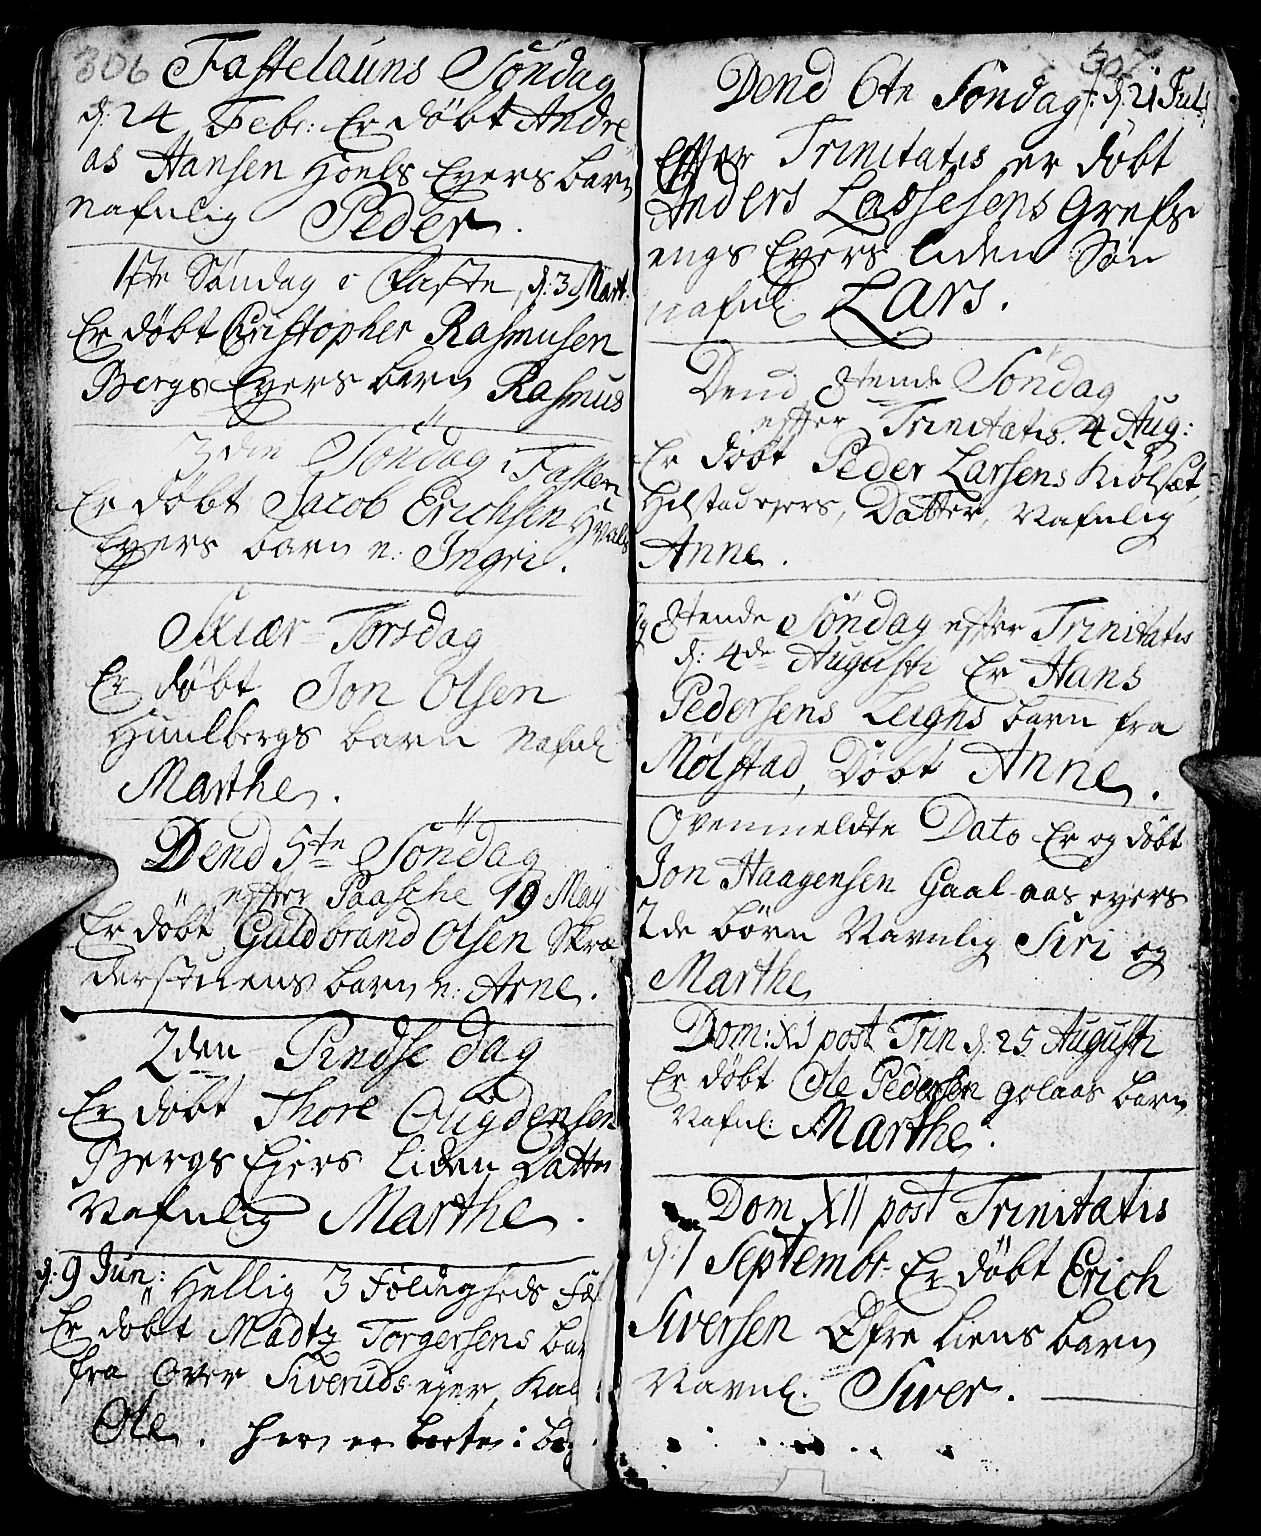 306 Fastelauns Söndag
d: 24 Febr: Er döbt Andre
as Hansen Hoels Eyers barn
nafnlig Peder.
1ste Søndag i Faste, d: 3 Mart:
Er döbt Christopher Rasmusen
Bergs Eyers barn Rasmus
3den Söndag i Fasten
Er döbt Jacob Erichsen Hvals
Eyers barn n: Ingri.
Skiær-Torsdag
Er döbt Jon Olsen
Huulbergs barn Nafnl.
Marthe.
Dend 5te Söndag
efter Paasche 19 Maij
Er döbt Guldbrand Olsen Skræ
derstuens barn n: Arne.
2den Pindse dag
Er döbt Thore Ougdensen
Bergs Ejers liden Datter
Nafnlig Marthe.
d: 9 Jun: Hellig 3 Foldigheds
Er döbt Madtz Torgersens
fra Over Siveruds ejer,
Ole.
307
Dend 6te Söndag d: 21 Jul:
Efter Trinitatis er döbt
Anders Lassesens Grefs
engs Eyers liden Søn
nafnl. Lars.
Dend 8tende Söndag
efter Trinitatis. 4 Aug:
Er döbt Peder Larsens Kiölsæt,
Helstad ejers, Datter, Nafnlig
Anne.
8tende Söndag efter Trinitatis
d: 4de Augusti Er Hans
Pedersens Leigns barn fra
Mølstad, Döbt Anne.
Ovenmeldte Dato Er og döbt
Jon Haagensen Gaal-aas eyers
2de börn Navnlig Siri og
Marthe
Dom: XI post Trin d: 25 Augusti
Er döbt Ole Pedersen golaas barn
Nafnl: Marthe.
Dom XII post Trinitatis
d: 1 Septembr Er döbt Erich
Siversen Øfre Liens barn
Navnl. Siver.